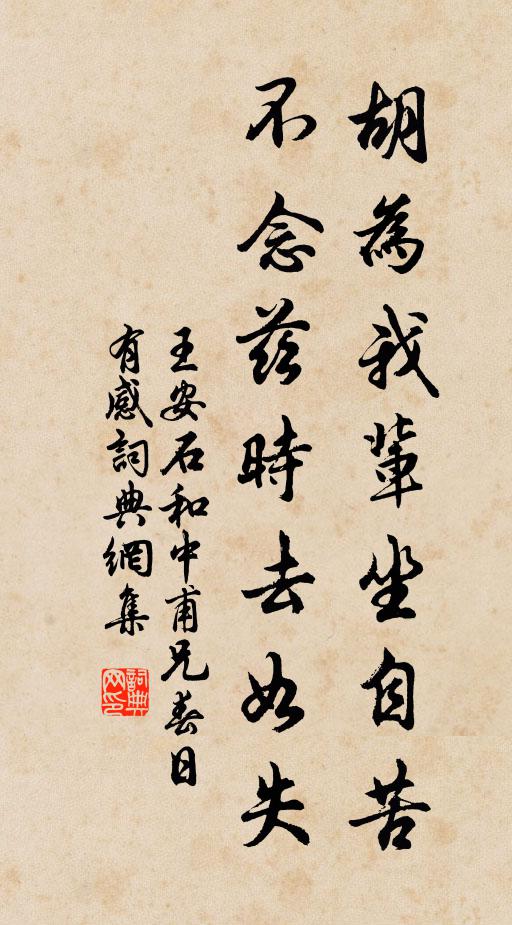 胡為我輩坐自苦
不念茲時去如失
王安石和中甫兄春日
有感詞典網集
詞典网印